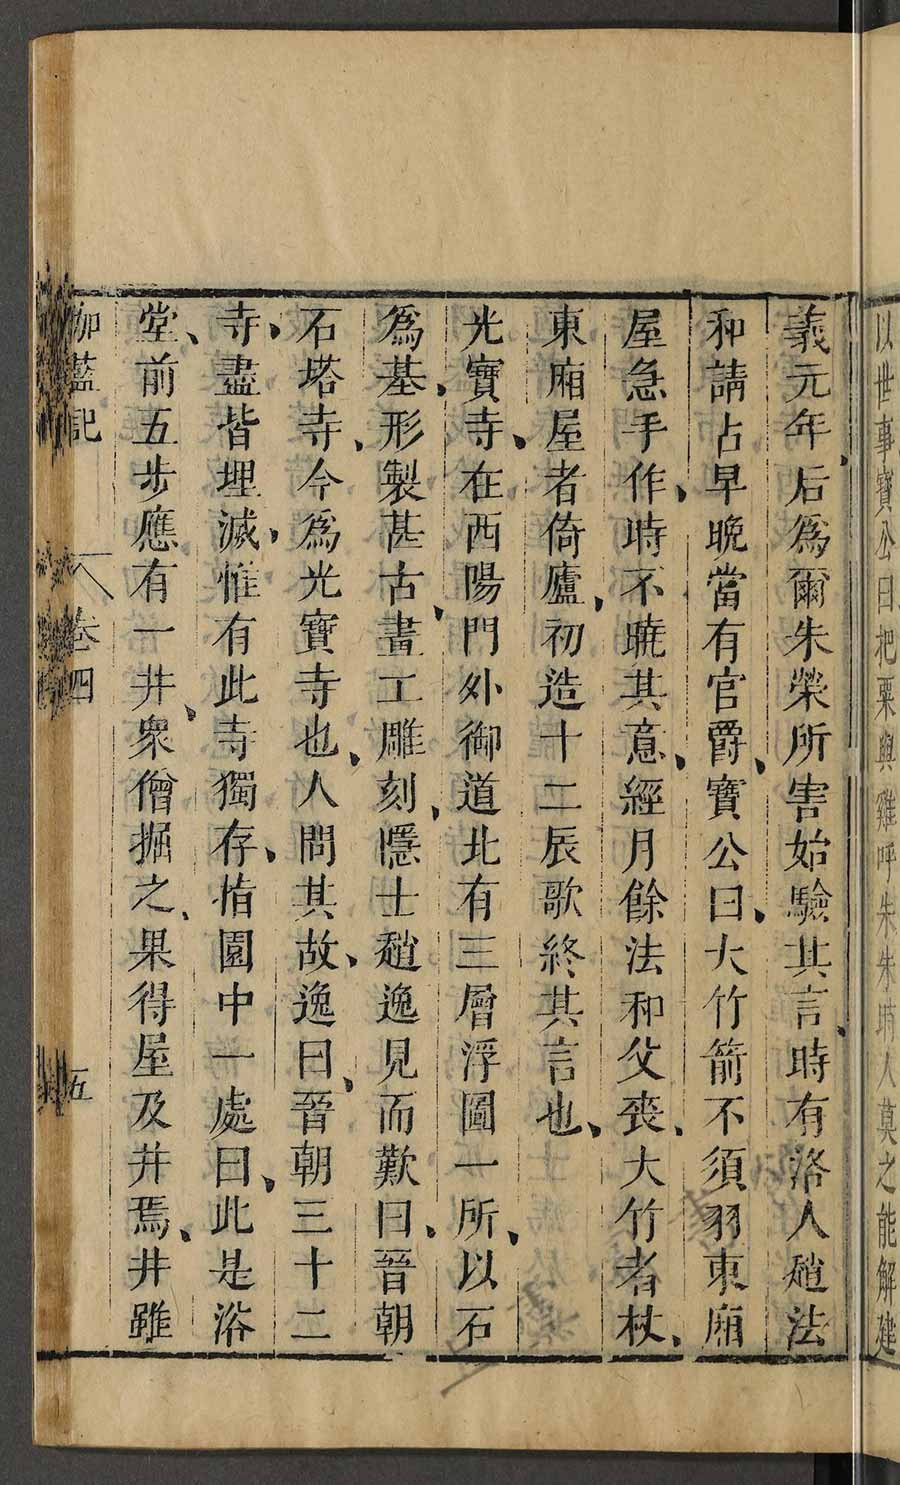 以世事寶公曰把粟與雞呼朱朱時人莫之能解建
義元年后爲爾朱榮所害始驗其言時有洛人趙法
和請占早晚當有官爵寶公曰大竹箭不須羽東廂
屋急手作時不曉其意經月餘法和父喪大竹者杖
東廂屋者倚廬初造十二辰歌終其言也
光寶寺在西陽門外御道北有三層浮圖一所以石
爲基形製甚古畫工雕刻隱士趙逸見而歎曰晉朝
石塔寺今爲光寶寺也人問其故逸曰晉朝三十二
寺盡皆堙滅惟有此寺獨存指園中一處曰此是浴
堂前五步應有一井衆僧掘之果得屋及井焉井雖
伽藍記 卷四 五